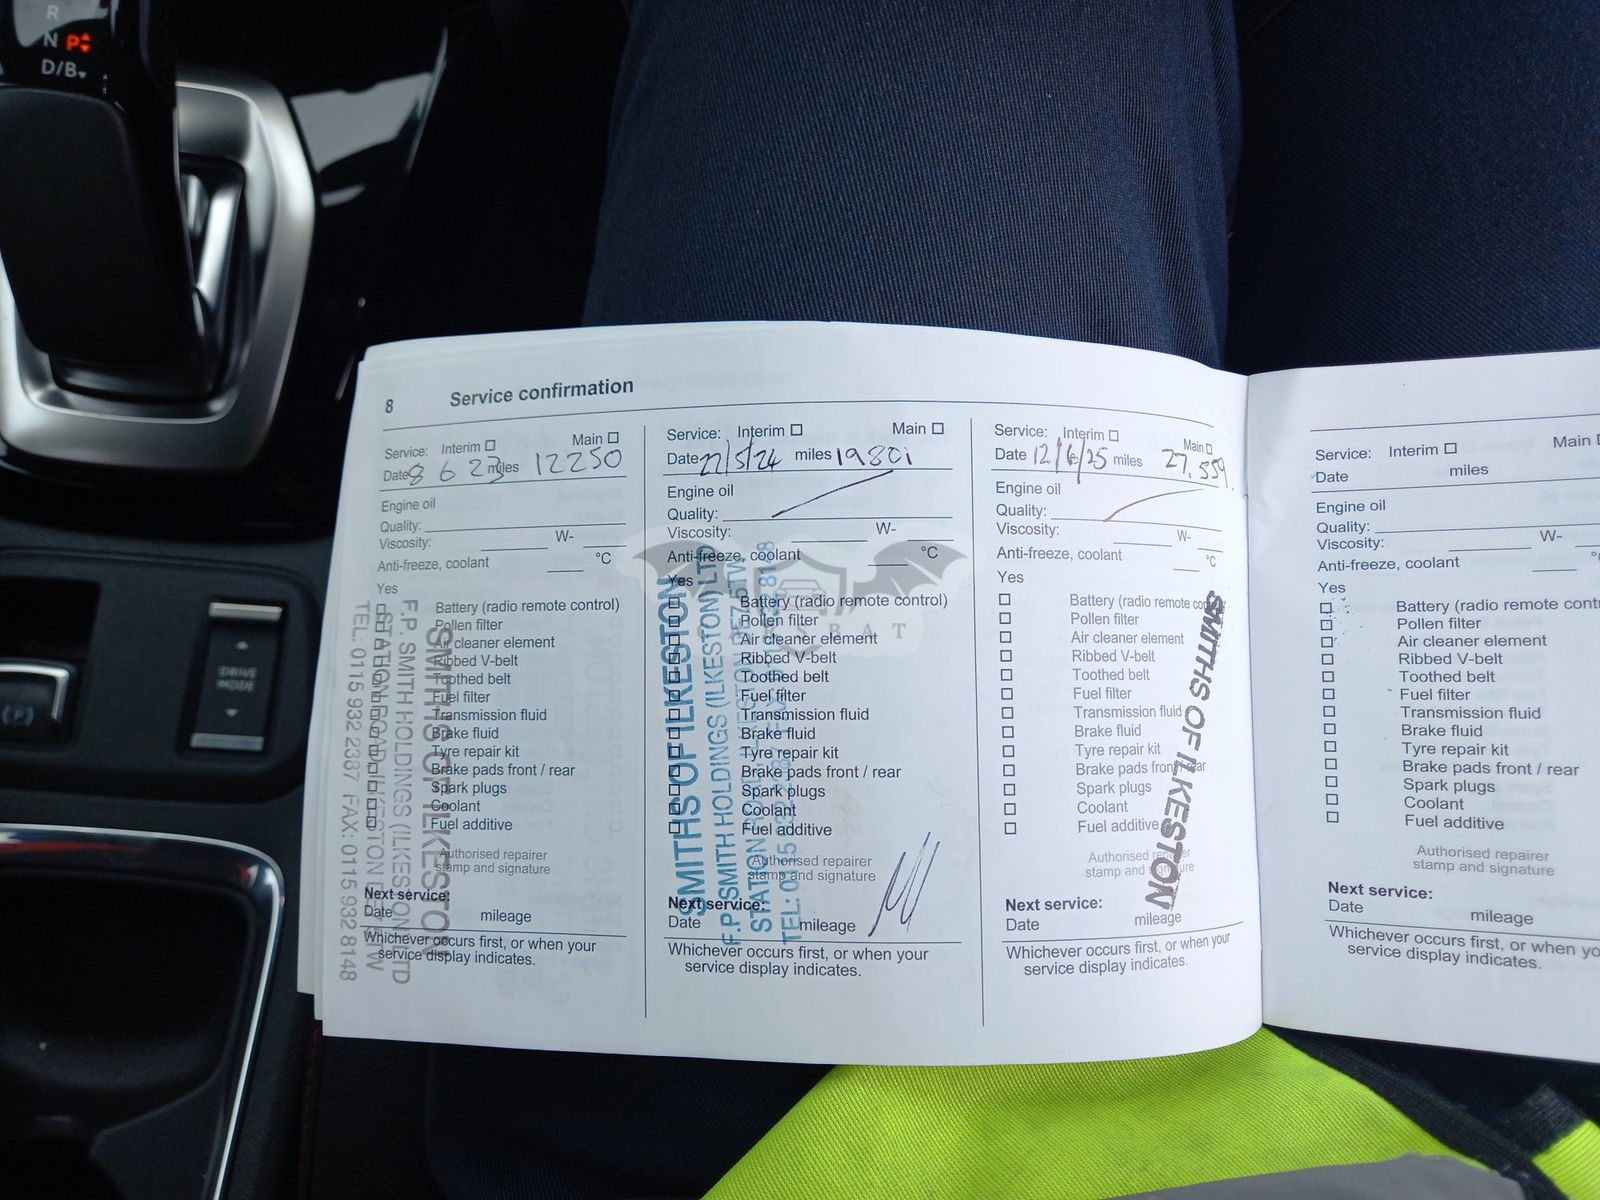 R
N P
D/B
DRIVE
MODE
(P)
8 Service confirmation
Service: Interim Main
Date 8 6 23 miles 12250
Engine oil
Quality:
Viscosity: W-
Anti-freeze, coolant °C
Yes
Battery (radio remote control)
Pollen filter
Air cleaner element
Ribbed V-belt
Toothed belt
Fuel filter
Transmission fluid
Brake fluid
Tyre repair kit
Brake pads front / rear
Spark plugs
Coolant
Fuel additive
Authorised repairer
stamp and signature
Next service:
Date mileage
Whichever occurs first, or when your
service display indicates.
SMITHS OF ILKESTON
F.P. SMITH HOLDINGS (ILKESTON) LTD
STATION ROAD, ILKESTON 5TW
TEL: 0115 932 2387 FAX: 0115 932 8148
Service: Interim Main
Date 22/5/24 miles 19801
Engine oil
Quality:
Viscosity: W-
Anti-freeze, coolant °C
Yes
Battery (radio remote control)
Pollen filter
Air cleaner element
Ribbed V-belt
Toothed belt
Fuel filter
Transmission fluid
Brake fluid
Tyre repair kit
Brake pads front / rear
Spark plugs
Coolant
Fuel additive
Authorised repairer
stamp and signature
Next service:
Date mileage
Whichever occurs first, or when your
service display indicates.
SMITHS OF ILKESTON
F.P. SMITH HOLDINGS (ILKESTON) LTD
STATION ROAD, ILKESTON DE7 5TW
TEL: 0115
Service: Interim Main
Date 12/6/25 miles 27.559.
Engine oil
Quality:
Viscosity: W-
Anti-freeze, coolant °C
Yes
Battery (radio remote
Pollen filter
Air cleaner element
Ribbed V-belt
Toothed belt
Fuel filter
Transmission fluid
Brake fluid
Tyre repair kit
Brake pads front / rear
Spark plugs
Coolant
Fuel additive
Authorised repairer
stamp and signature
Next service:
Date mileage
Whichever occurs first, or when your
service display indicates.
SMITHS OF ILKESTON
Service: Interim Main
Date miles
Engine oil
Quality:
Viscosity: W-
Anti-freeze, coolant
Yes
Battery (radio remote contr
Pollen filter
Air cleaner element
Ribbed V-belt
Toothed belt
Fuel filter
Transmission fluid
Brake fluid
Tyre repair kit
Brake pads front / rear
Spark plugs
Coolant
Fuel additive
Authorised repairer
stamp and signature
Next service:
Date mileage
Whichever occurs first, or when yo
service display indicates.